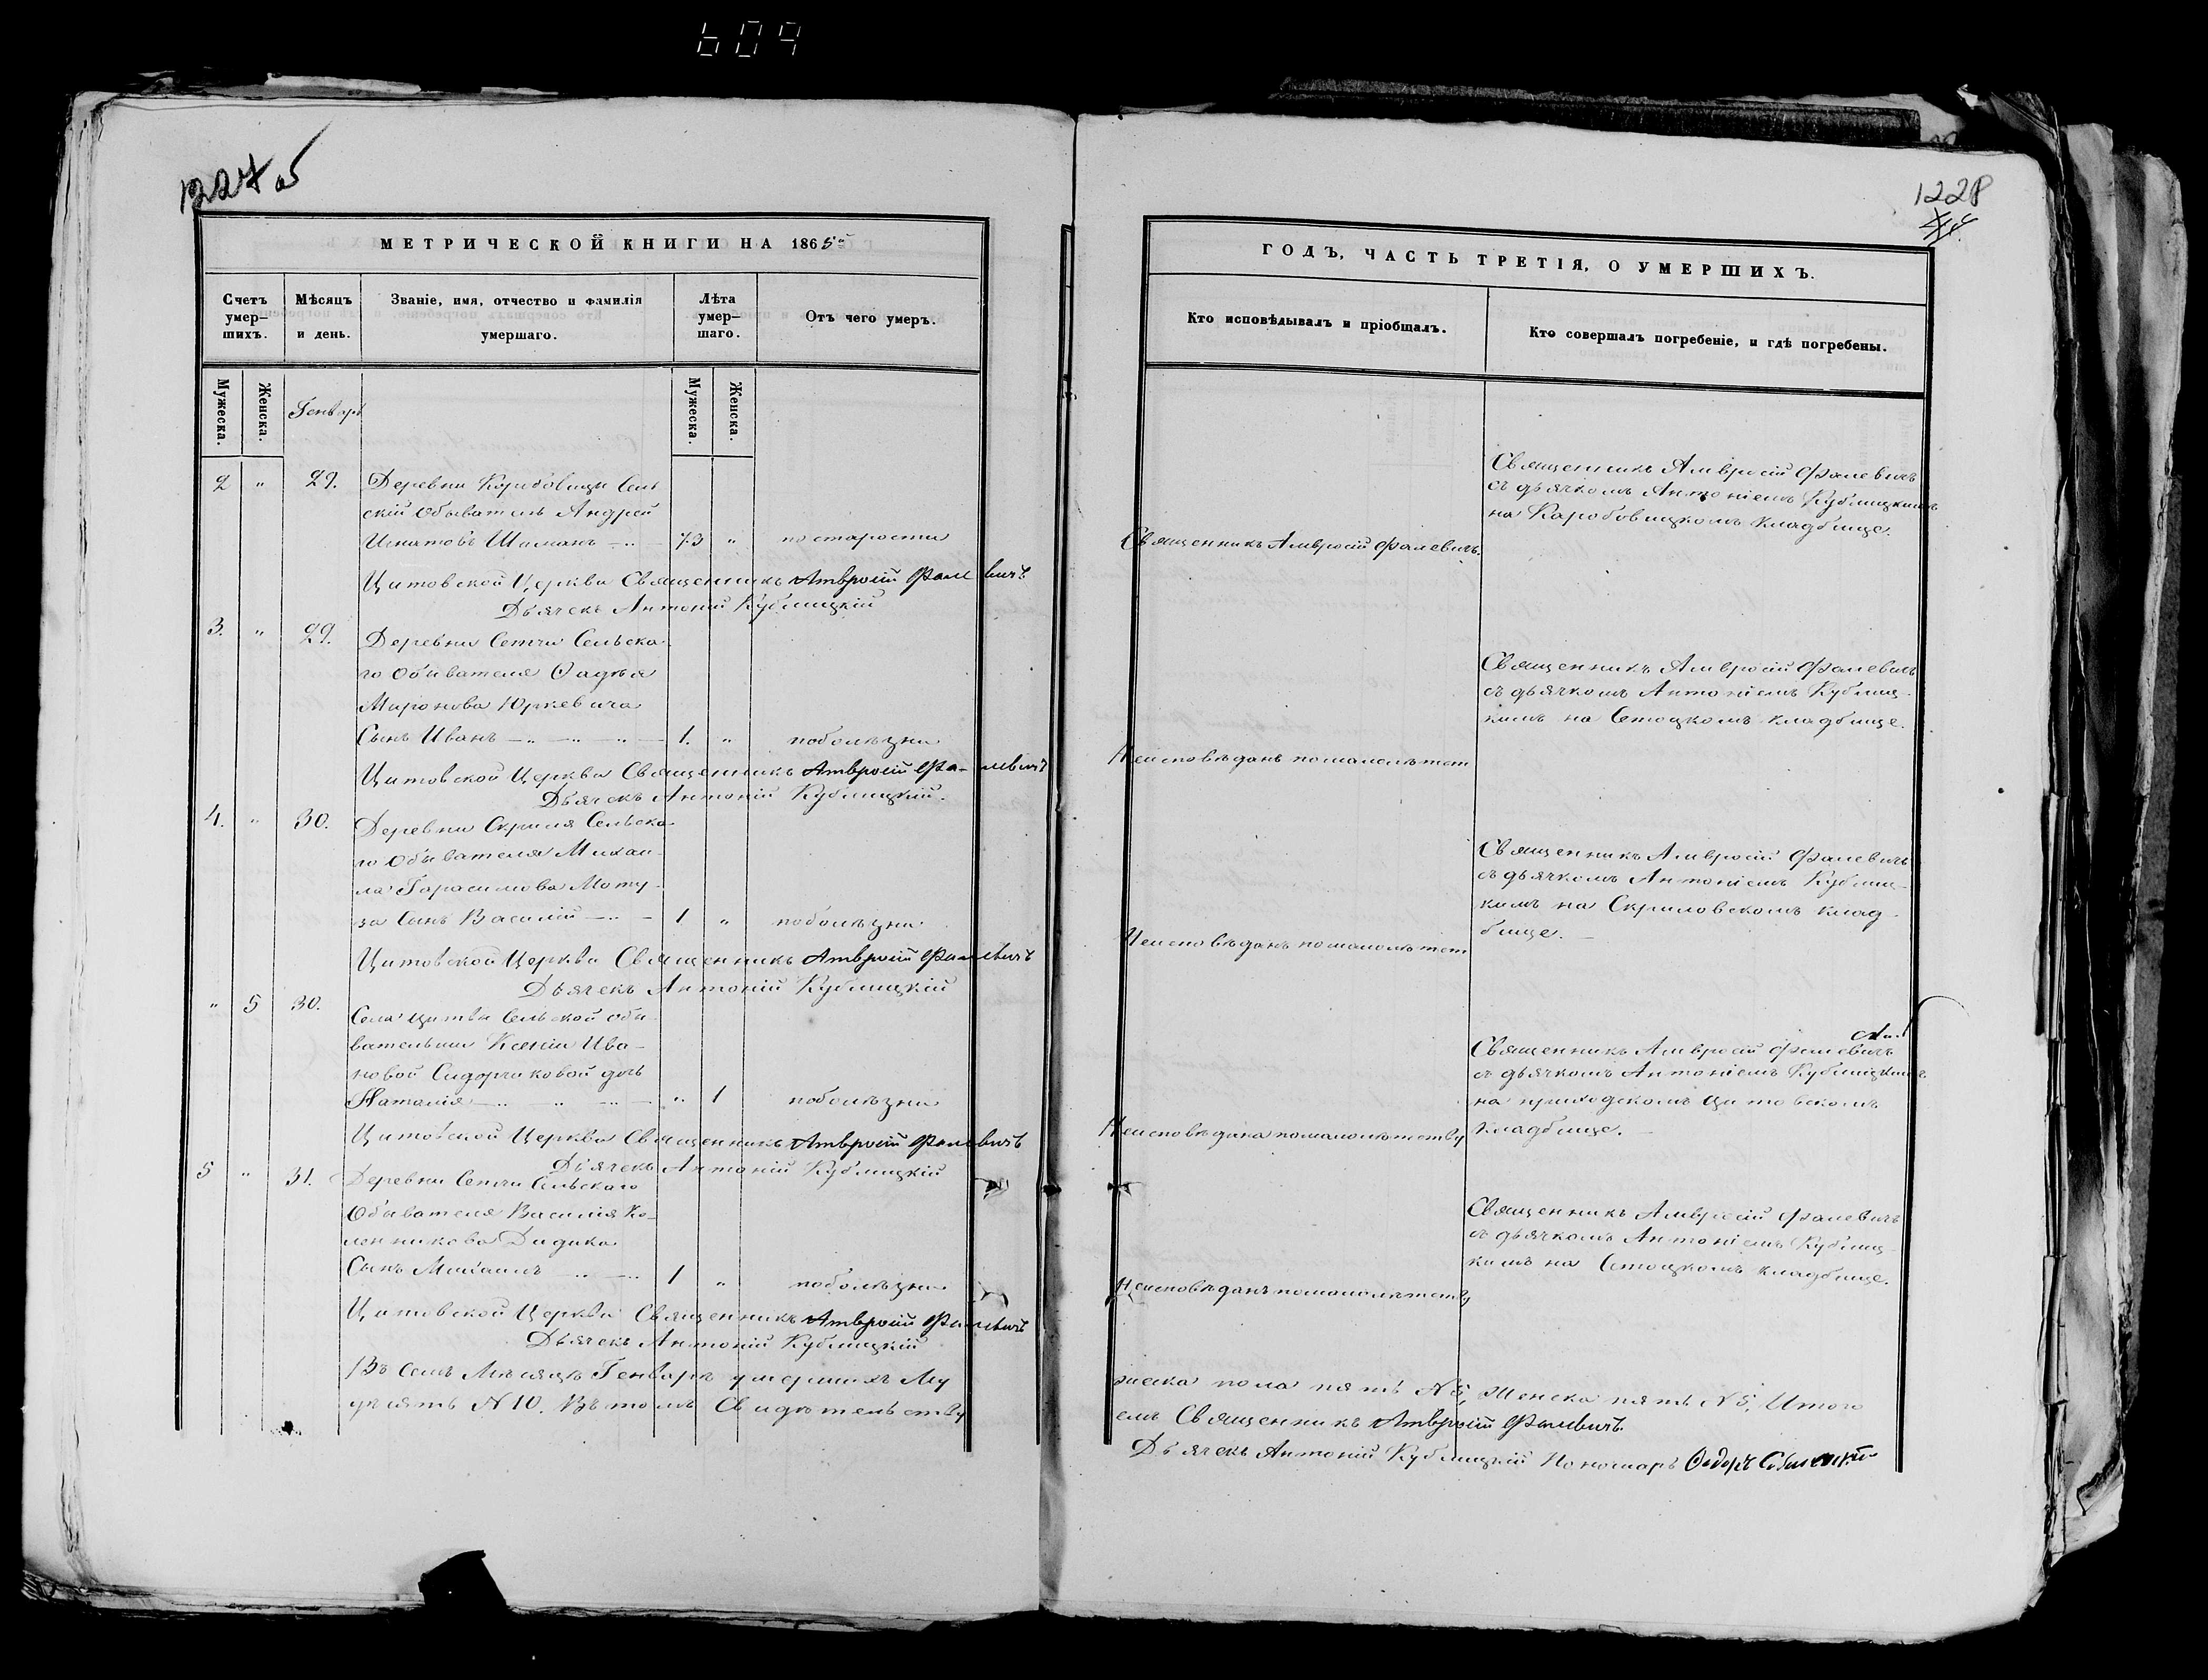 609
1227 об
МЕТРИЧЕСКОЙ КНИГИ НА 1865й
Счетъ умер-шихъ.
Мѣсяцъ и день.
Званіе, имя, отчество и фамилія умершаго.
Лѣта умер-шаго.
Отъ чего умеръ.
Мужеска.
Женска.
Генварь
Мужеска.
Женска.
2 " 29. Деревни Коробовщи Сель
скій Обыватель Андрей
Игнатовъ Шиманъ 73 " по старости
Цитовской Церкви Священникъ Амвросій Фалевичъ
Дьячекъ Антоній Кублицкій
3. " 29. Деревни Сетчи Сельска-
го Обывателя Фадѣя
Миронова Юркевича
Сынъ Иванъ 1. " по болѣзни
Цитовской Церкви Священникъ Амвросій Фалевичъ
Дьячекъ Антоній Кублицкій.
4. " 30. Деревни Скриля Сельска-
го Обывателя Михаи-
ла Герасимова Моту-
за Сынъ Василій 1 " по болѣзни
Цитовской Церкви Священникъ Амвросій Фалевичъ
Дьячекъ Антоній Кублицкій
" 5 30. Села Цитвы Сельской Обы-
вательки Ксеніи Ива-
новой Сидорчиковой дочь
Наталія " 1 по болѣзни
Цитовской Церкви Священникъ Амвросій Фалевичъ
Дьячекъ Антоній Кублицкій
5 " 31. Деревни Сетчи Сельскаго
Обывателя Василія Ка-
Дидика
Сынъ Михаилъ 1 " по болѣзни
Цитовской Церкви Священникъ Амвросій Фалевичъ
Дьячекъ Антоній Кублицкій
Въ семъ Мѣсяцѣ Генварѣ умершихъ Му
десять N 10. Въ томъ Свидѣтельству
1228
ГОДЪ, ЧАСТЬ ТРЕТІЯ, О УМЕРШИХЪ.
Кто исповѣдывалъ и пріобщалъ.
Кто совершалъ погребеніе, и гдѣ погребены.
Священникъ Амвросій Фалевичъ
съ дьячкомъ Антоніемъ Кублицкимъ
на Коробовицкомъ кладбище.
Священникъ Амвросій Фалевичъ.
Священникъ Амвросій Фалевичъ
съ дьячкомъ Антоніемъ Кублиц-
кимъ на Сетоцкомъ кладбище.
Неисповѣданъ по малолѣтст
Священникъ Амвросій Фалевичъ
съ дьячкомъ Антоніемъ Кублиц-
кимъ на Скриловскомъ клад-
бище.
Неисповѣданъ по малолѣтст
Священникъ Амвросій Фалевичъ
съ дьячкомъ Антоніемъ Кублицкимъ
на приходскомъ Цитовскомъ
кладбище.
Неисповѣдана по малолѣтству
Священникъ Амвросій Фалевичъ
съ дьячкомъ Антоніемъ Кублиц-
кимъ на Сетоцкомъ кладбище.
Неисповѣданъ по малолѣтству
жеска пола пять N 5, Женска пять N 5, Итого
емъ Священникъ Амвросій Фалевичъ.
Дьячекъ Антоній Кублицкій Пономарь Ѳедоръ